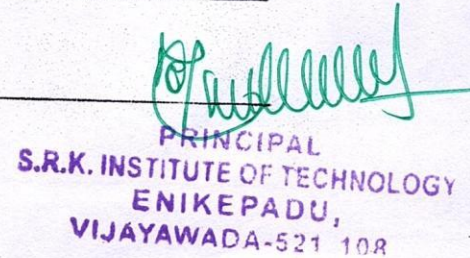 PRINCIPAL
S.R.K. INSTITUTE OF TECHNOLOGY
ENIKEPADU,
VIJAYAWADA-521 108